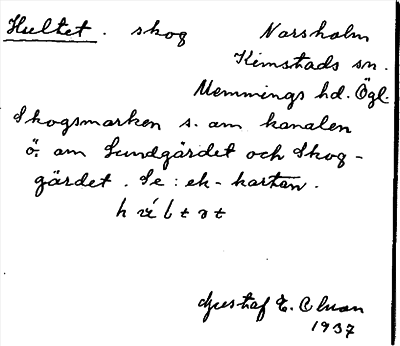 Hultet. skog Norsholm
Kimstads sn.
Memmings hd. Ögl.
Skogsmarken s. om kanalen
ö. om Lundgärdet och Skog-
gärdet. Se: ek-kartan.
Gustaf E.
1937